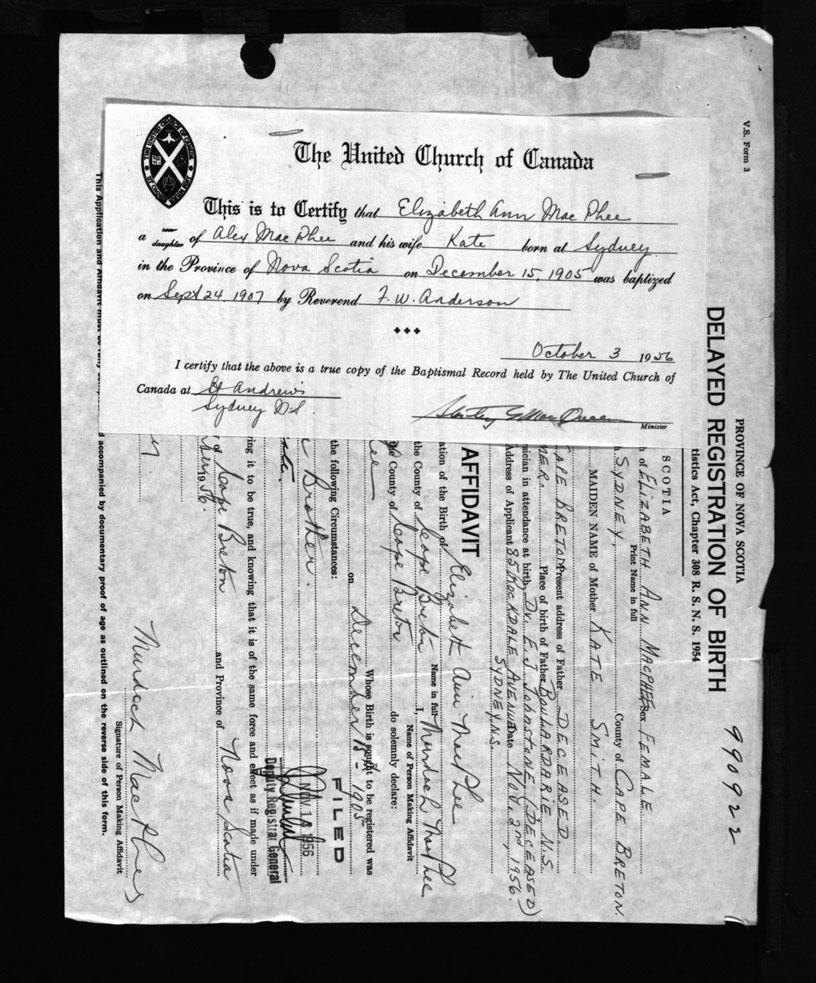 The United Church of Canada
This is to Certify that Elizabeth Ann MacPhee
a son daughter of Alex MacPhee and his wife Kate born at Sydney
in the Province of Nova Scotia on December 15, 1905 was baptized
on Sept 24 1907 by Reverend F. W. Anderson
October 3 1956
I certify that the above is a true copy of the Baptismal Record held by The United Church of
Canada at St Andrew's
Sydney N.S.
Minister
V.S. Form 3
990922
PROVINCE OF NOVA SCOTIA
DELAYED REGISTRATION OF BIRTH
tistics Act, Chapter 308 R. S. N. S. 1954
SCOTIA
of ELIZABETH ANN MACPHEE Sex FEMALE
Print Name in full
SYDNEY, County of CAPE BRETON.
MAIDEN NAME of Mother KATE SMITH.
CAPE BRETON Present address of Father DECEASED.
Place of birth of Father BOULARDARIE N.S.
ician in attendance at birth DR. E.J. JOHNSTONE (DECEASED)
Address of Applicant 85 ROCKDALE AVENUE Date NOV. 2nd, 1956.
SYDNEY N.S.
AFFIDAVIT
ation of the Birth of Elizabeth Ann MacPhee
Name in full
the County of Cape Breton I, Murdoch MacPhee
Name of Person Making Affidavit
the County of Cape Breton do solemnly declare:
Whose Birth is sought to be registered was
on December 15th 1905
the following Circumstances:
Brother.
FILED
NOV 10 1956
Deputy Registrar General
ing it to be true, and knowing that it is of the same force and effect as if made under
of Cape Breton and Province of Nova Scotia
1956.
Murdoch MacPhee
Signature of Person Making Affidavit
This Application and Affidavit must be fully
accompanied by documentary proof of age as outlined on the reverse side of this form.